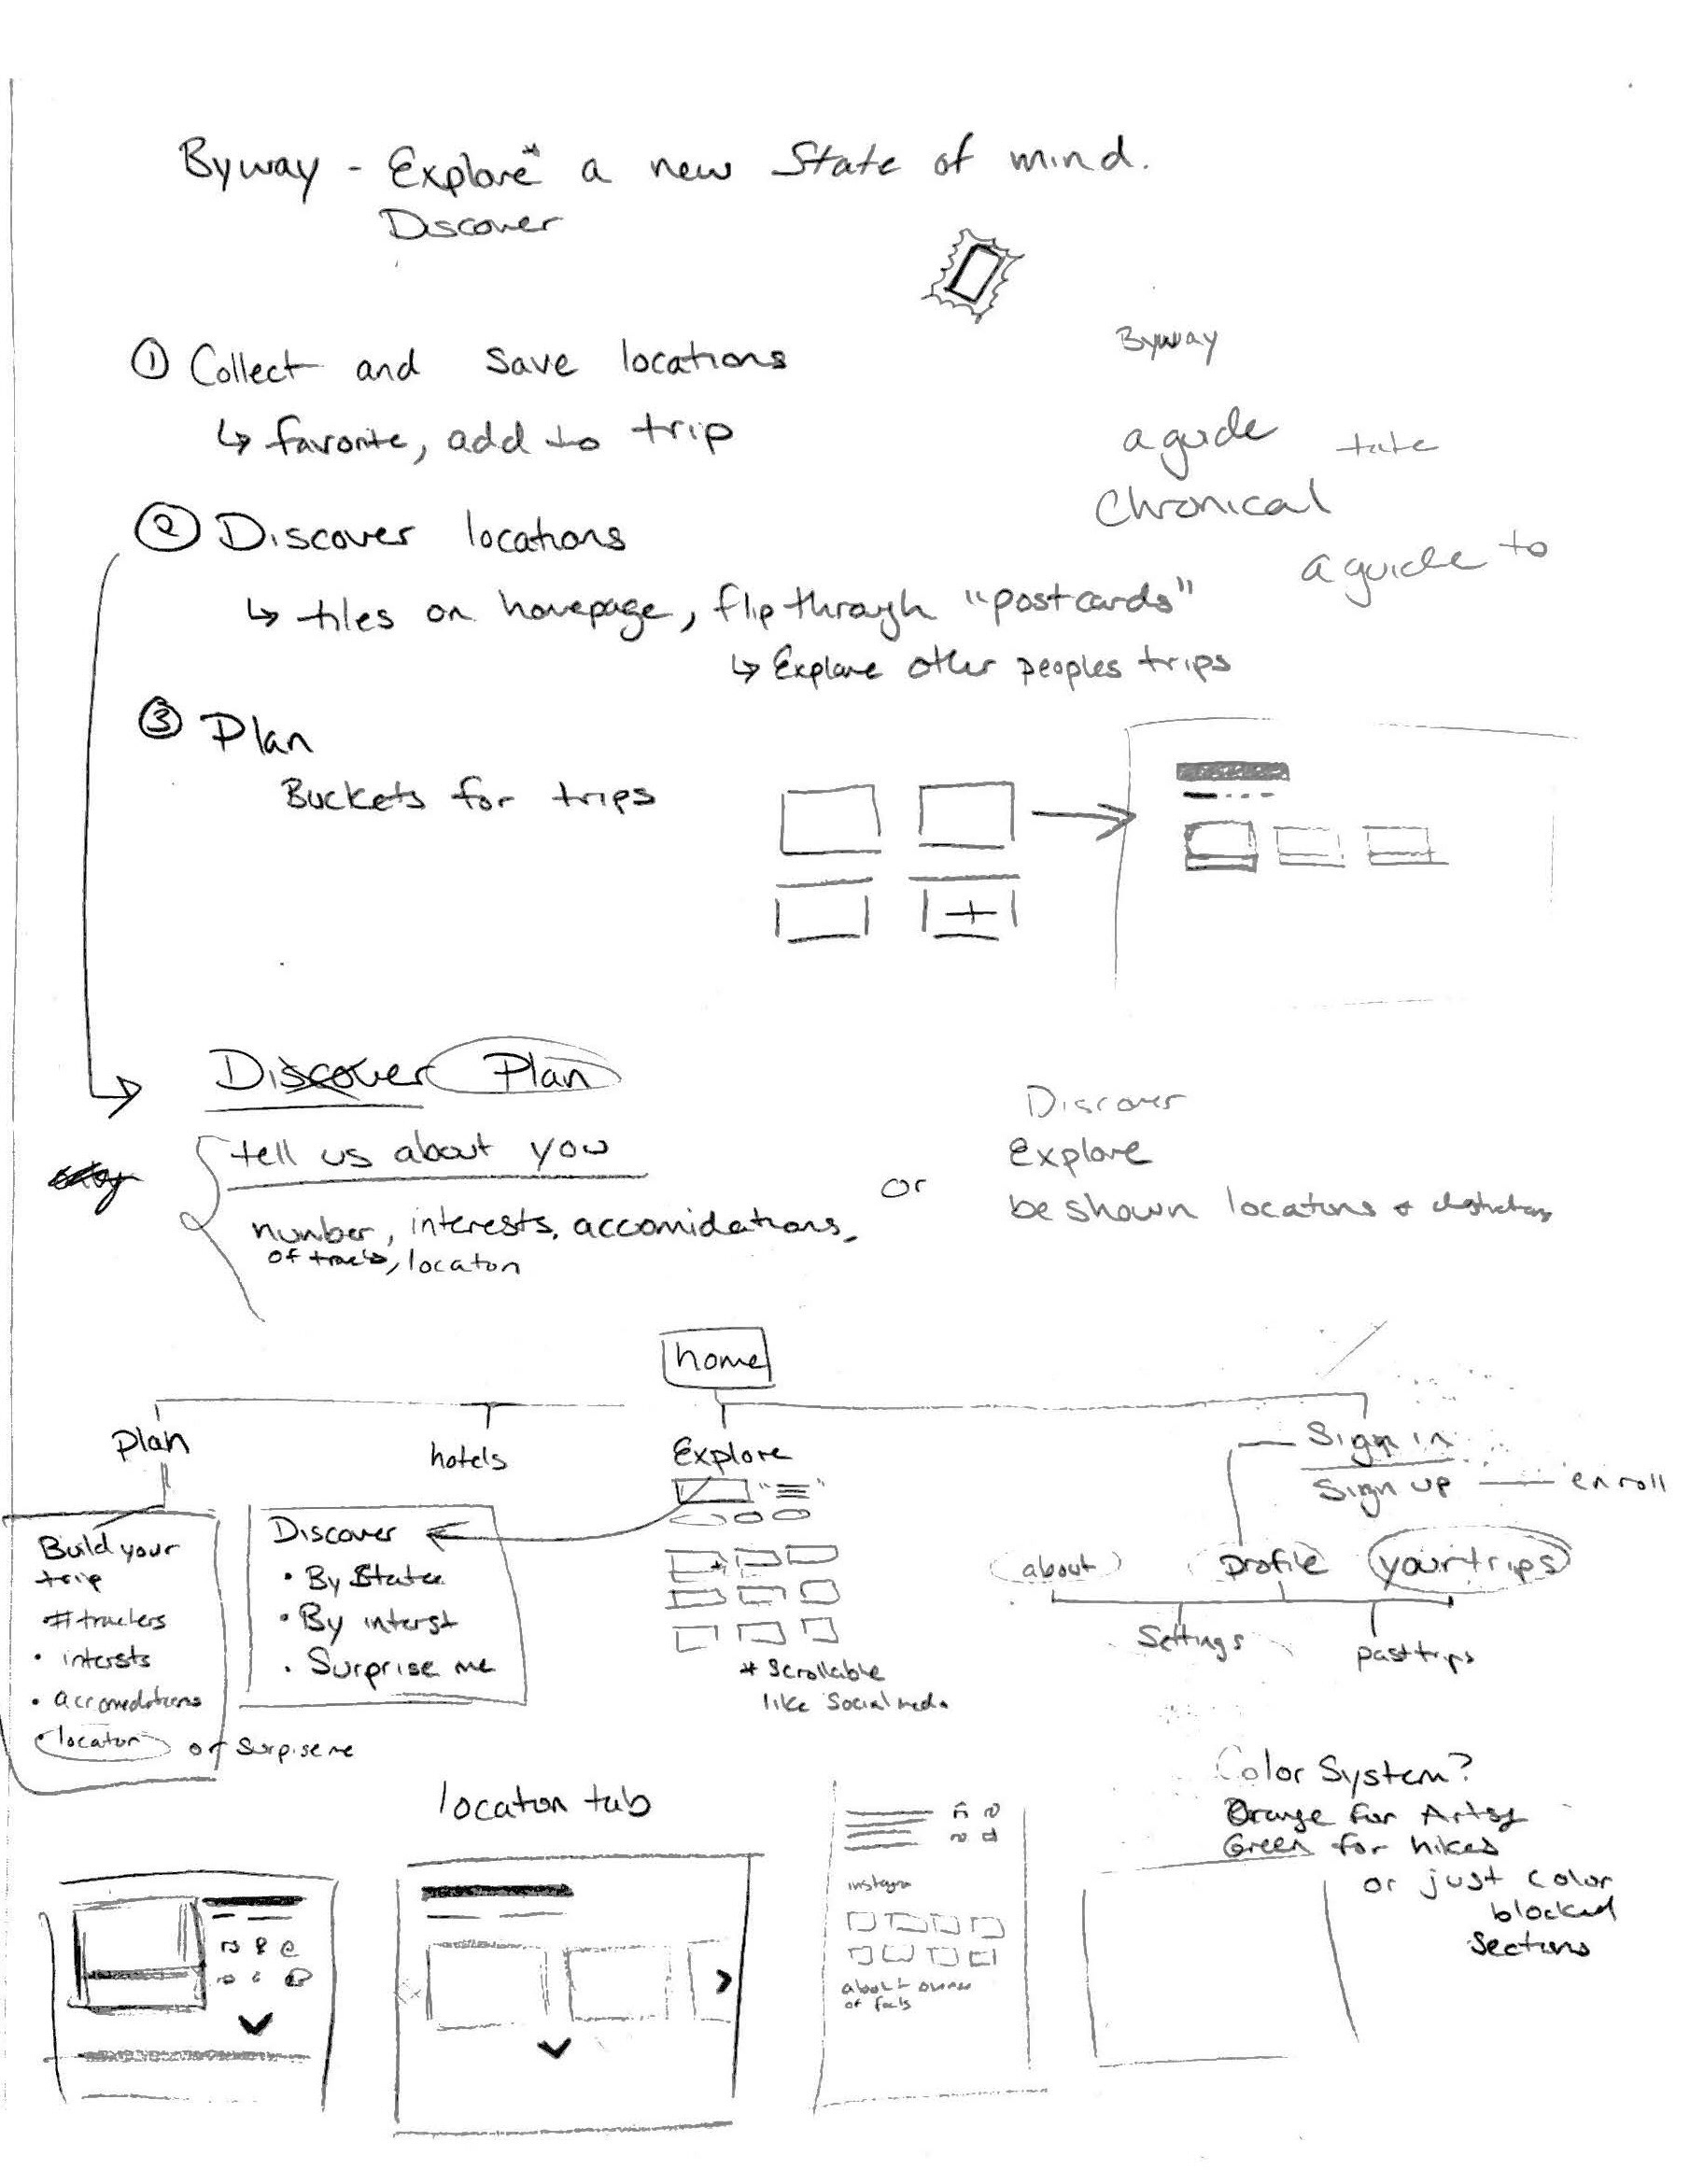 Byway - Explore* a new State of mind.
Discover
Byway
① Collect and save locations
↳ favorite, add to trip
a guide
Chronical
② Discover locations
a guide to
↳ tiles on homepage, flip through "postcards"
↳ Explore other peoples trips
③ Plan
Buckets for trips
+
Discover Plan
tell us about you
or
Discover
Explore
be shown locations +
number, interests, accomidations,
of , location
home
Plan
hotels
Explore
Sign in
Sign up — enroll
Build your
trip
# travlers
• intersts
• accomodations
• location or surpise me
Discover
• By State
• By interst
• Surprise me
* Scrollable
like Social media
about
Profile
your trips
Settings
past trips
location tab
Color System?
Orange for Artsy
Green for hikes
or just color
blocked
Sections
about owner